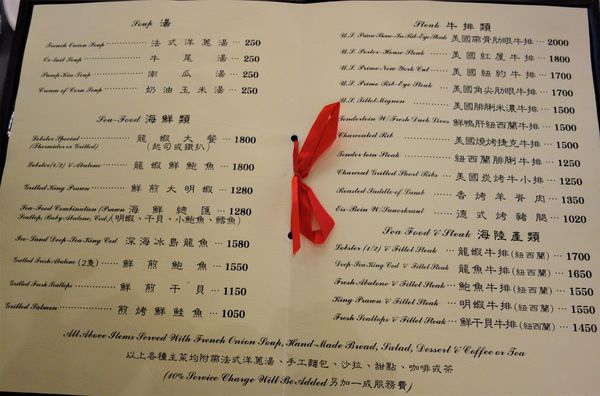 Soup 湯
French Onion Soup 法式洋蔥湯 250
Ox-tail Soup 牛尾湯 250
Pump Kin Soup 南瓜湯 250
Cream of Corn Soup 奶油玉米湯 250
Sea-Food 海鮮類
Lobster Special 龍蝦大餐 1800
(Thermaler or Grilled) (起司或鐵扒)
Lobster(1/2) & Abalone 龍蝦鮮鮑魚 1800
Grilled King Prawn 鮮煎大明蝦 1280
Sea-Food Combination (Prawn 海鮮總匯 1280
Scallop, Baby Abalone, Cod) (明蝦、干貝、小鮑魚、鱈魚)
Ice-Land Deep-Sea King Cod 深海冰島龍魚 1580
Grilled Fresh Abalone (2隻) 鮮煎鮑魚 1550
Grilled Fresh Scallops 鮮煎干貝 1150
Grilled Salmon 煎烤鮮鮭魚 1050
Steak 牛排類
U.S. Prime Bone-In Rib-Eye Steak 美國帶骨肋眼牛排 2000
U.S. Porter-House Steak 美國紅屋牛排 1800
U.S. Prime New York Cut 美國紐約牛排 1700
U.S. Prime Rib-Eye Steak 美國角尖肋眼牛排 1700
U.S. Fillet Mignon 美國腓脷米濃牛排 1500
Tenderloin W/Fresh Duck Liver 鮮鴨肝紐西蘭牛排 1500
Charcoaled Rib 美國燒烤捷克牛排 1500
Tenderloin Steak 紐西蘭腓脷牛排 1250
Charcoal Grilled Short Ribs 美國炭烤牛小排 1250
Roasted Saddle of Lamb 香烤羊脊肉 1350
Eis-Bein W/Sauerkraut 德式烤豬腿 1020
Sea Food & Steak 海陸產類
Lobster (1/2) & Fillet Steak 龍蝦牛排(紐西蘭) 1700
Deep-Sea King Cod & Fillet Steak 龍魚牛排(紐西蘭) 1650
Fresh Abalone & Fillet Steak 鮑魚牛排(紐西蘭) 1550
King Prawn & Fillet Steak 明蝦牛排(紐西蘭) 1550
Fresh Scallops & Fillet Steak 鮮干貝牛排(紐西蘭) 1450
All Above Items Served With French Onion Soup, Hand-Made Bread, Salad, Dessert & Coffee or Tea
以上各種主菜均附帶法式洋蔥湯、手工麵包、沙拉、甜點、咖啡或茶
(10% Service Charge Will Be Added 另加一成服務費)